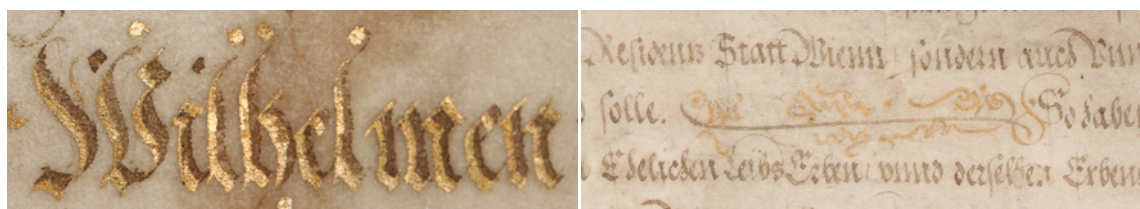 Wilhelmen
Residenz Statt Wienn sondern auch Vnn
solle. So habe
Ehelichen Leibs Erben vnnd derselben Erben